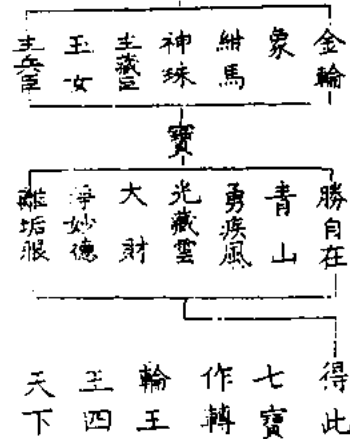 金輪
象
紺馬
神珠
主藏臣
玉女
主兵臣
寶
勝自在
青山
勇疾風
光藏雲
大財
淨妙德
離垢眼
得此
七寶
作轉
輪王
王四
天下